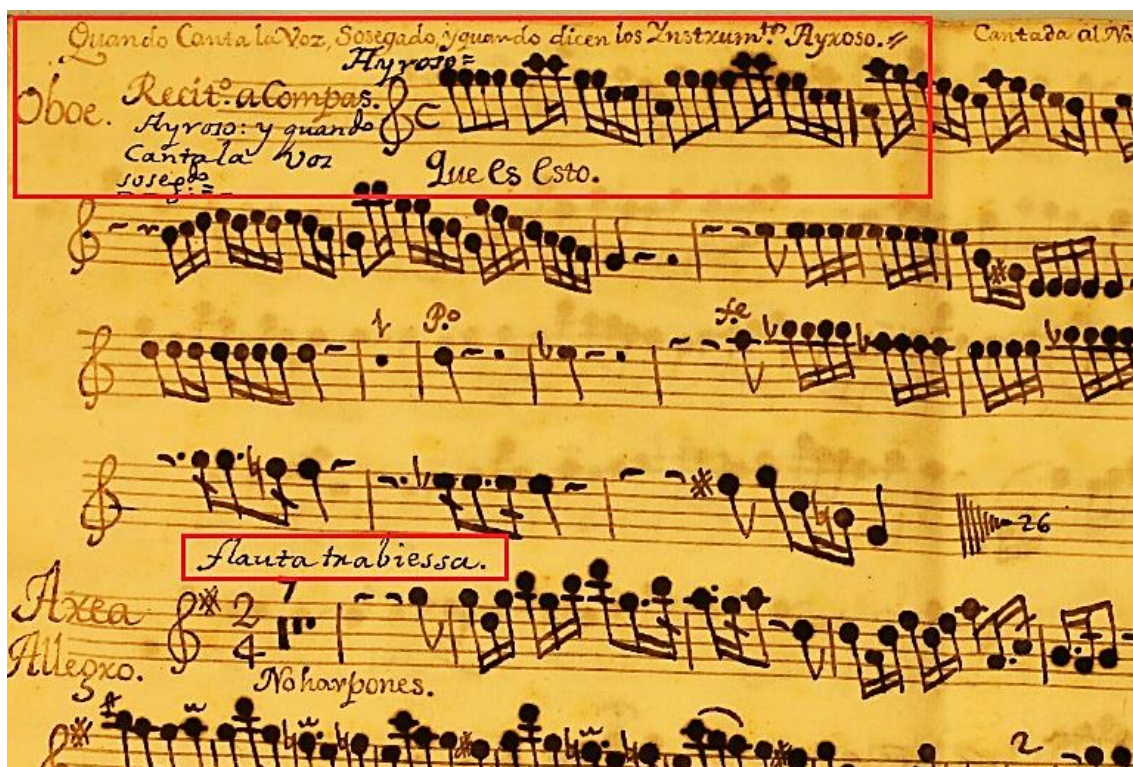 Quando Canta la Voz, Sosegado, y quando dicen los Ynstrum.tos Ayroso.
Cantada al Na
Ayroso
Oboe. Recit.o a Compas.
Ayroso: y quando
Canta la Voz
sosegdo
Que es esto.
P.o
fe
26
flauta trabiessa.
Area
Allegro.
2
4
7
No harpones.
2